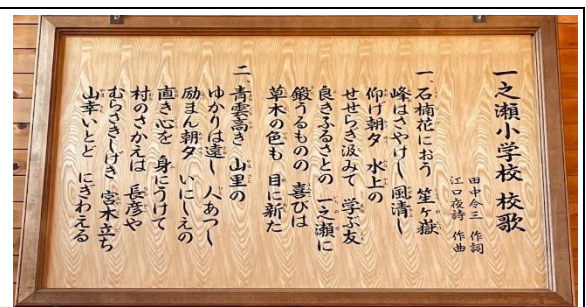 一之瀬小学校 校歌
田中令三 作詞
江口夜詩 作曲
一、石楠花におう 笙ヶ嶽
峰はさやけし 風清し
仰げ朝夕 水上の
せせらぎ汲みて 学ぶ友
良きふるさとの 一之瀬に
鍛うるものの 喜びは
草木の色も 目に新た
二、青雲高き 山里の
ゆかりは遠し 人あつし
励まん朝夕 いにしえの
直き心を 身にうけて
村のさかえは 長彦や
むらさきしげき 宮木立ち
山幸いとど にぎわえる